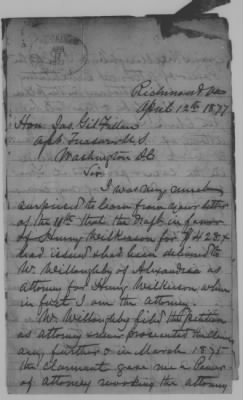 Richmond Va
April 12th 1877
Hon. Jas Gilfillan
Washington DC
Sir
I was very much
surprised to learn from your letter
of the 11th that the draft in favor
of Henry Wilkerson for $428
had issued & had been delivered to
W. Willoughby of Alexandria as
attorney for Henry Wilkerson when
in fact I am the attorney.
W. Willoughby filed the petition
as attorney & never prosecuted the claim
any further & in March 1875
the claimant gave me a Power
of attorney revoking the attorney